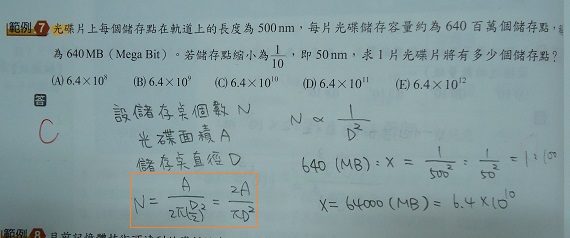 範例 7 光碟片上每個儲存點在軌道上的長度為500nm，每片光碟儲存容量約為640百萬個儲存點，
為640MB（Mega Bit）。若儲存點縮小為1/10，即50nm，求1片光碟片將有多少個儲存點？
(A) 6.4×10⁸ (B) 6.4×10⁹ (C) 6.4×10¹⁰ (D) 6.4×10¹¹ (E) 6.4×10¹²
答
C
設儲存點個數 N
光碟面積 A
儲存點直徑 D
N = A/2π(D/2)² = 2A/πD²
N ∝ 1/D²
640 (MB) : X = 1/500² : 1/50² = 1:100
X = 64000 (MB) = 6.4 × 10¹⁰
範例 8